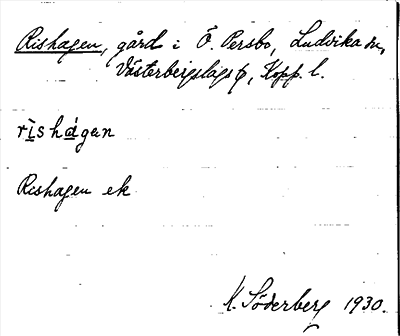 Rishagen, gård i Ö. Persbo, Ludvika sn,
Västerbergslags fö, Kopp. l.
rìshágan
Rishagen ek
K. Söderberg 1930.